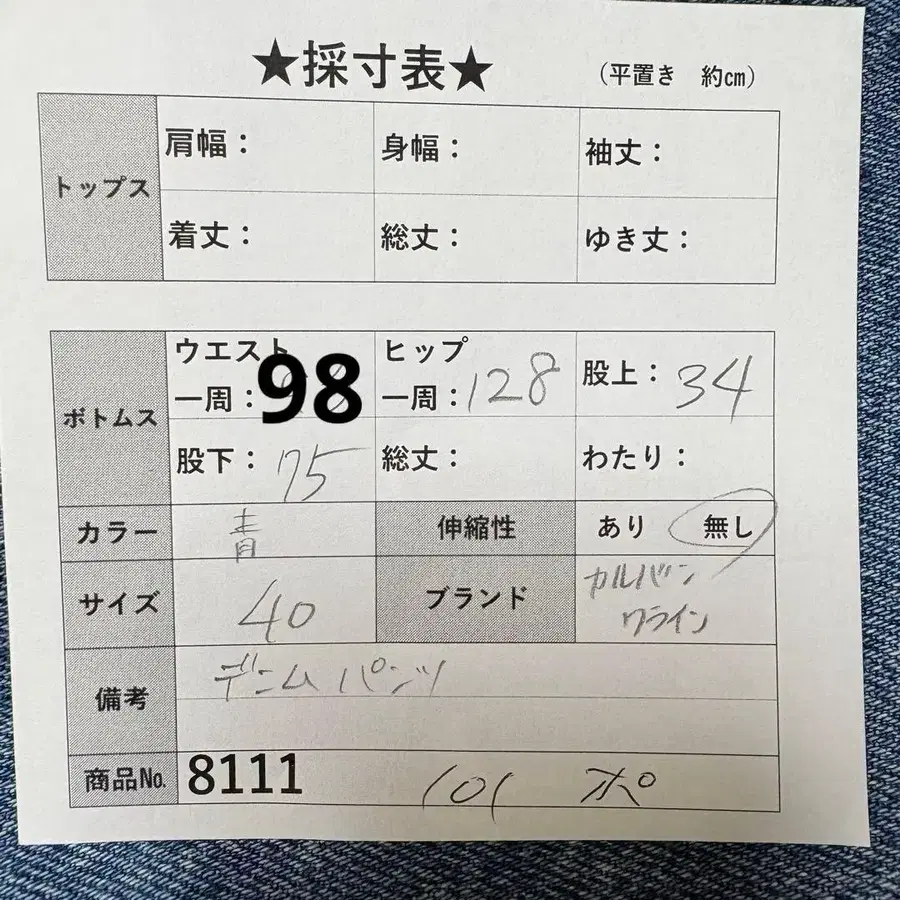 ★採寸表★ (平置き 約㎝)
トップス
肩幅: 身幅: 袖丈:
着丈: 総丈: ゆき丈:
ボトムス
ウエスト一周:98 ヒップ一周:128 股上:34
股下:75 総丈: わたり:
カラー 青 伸縮性 あり 無し
サイズ 40 ブランド カルバンクライン
備考 デニムパンツ
商品№ 8111 101 ポ